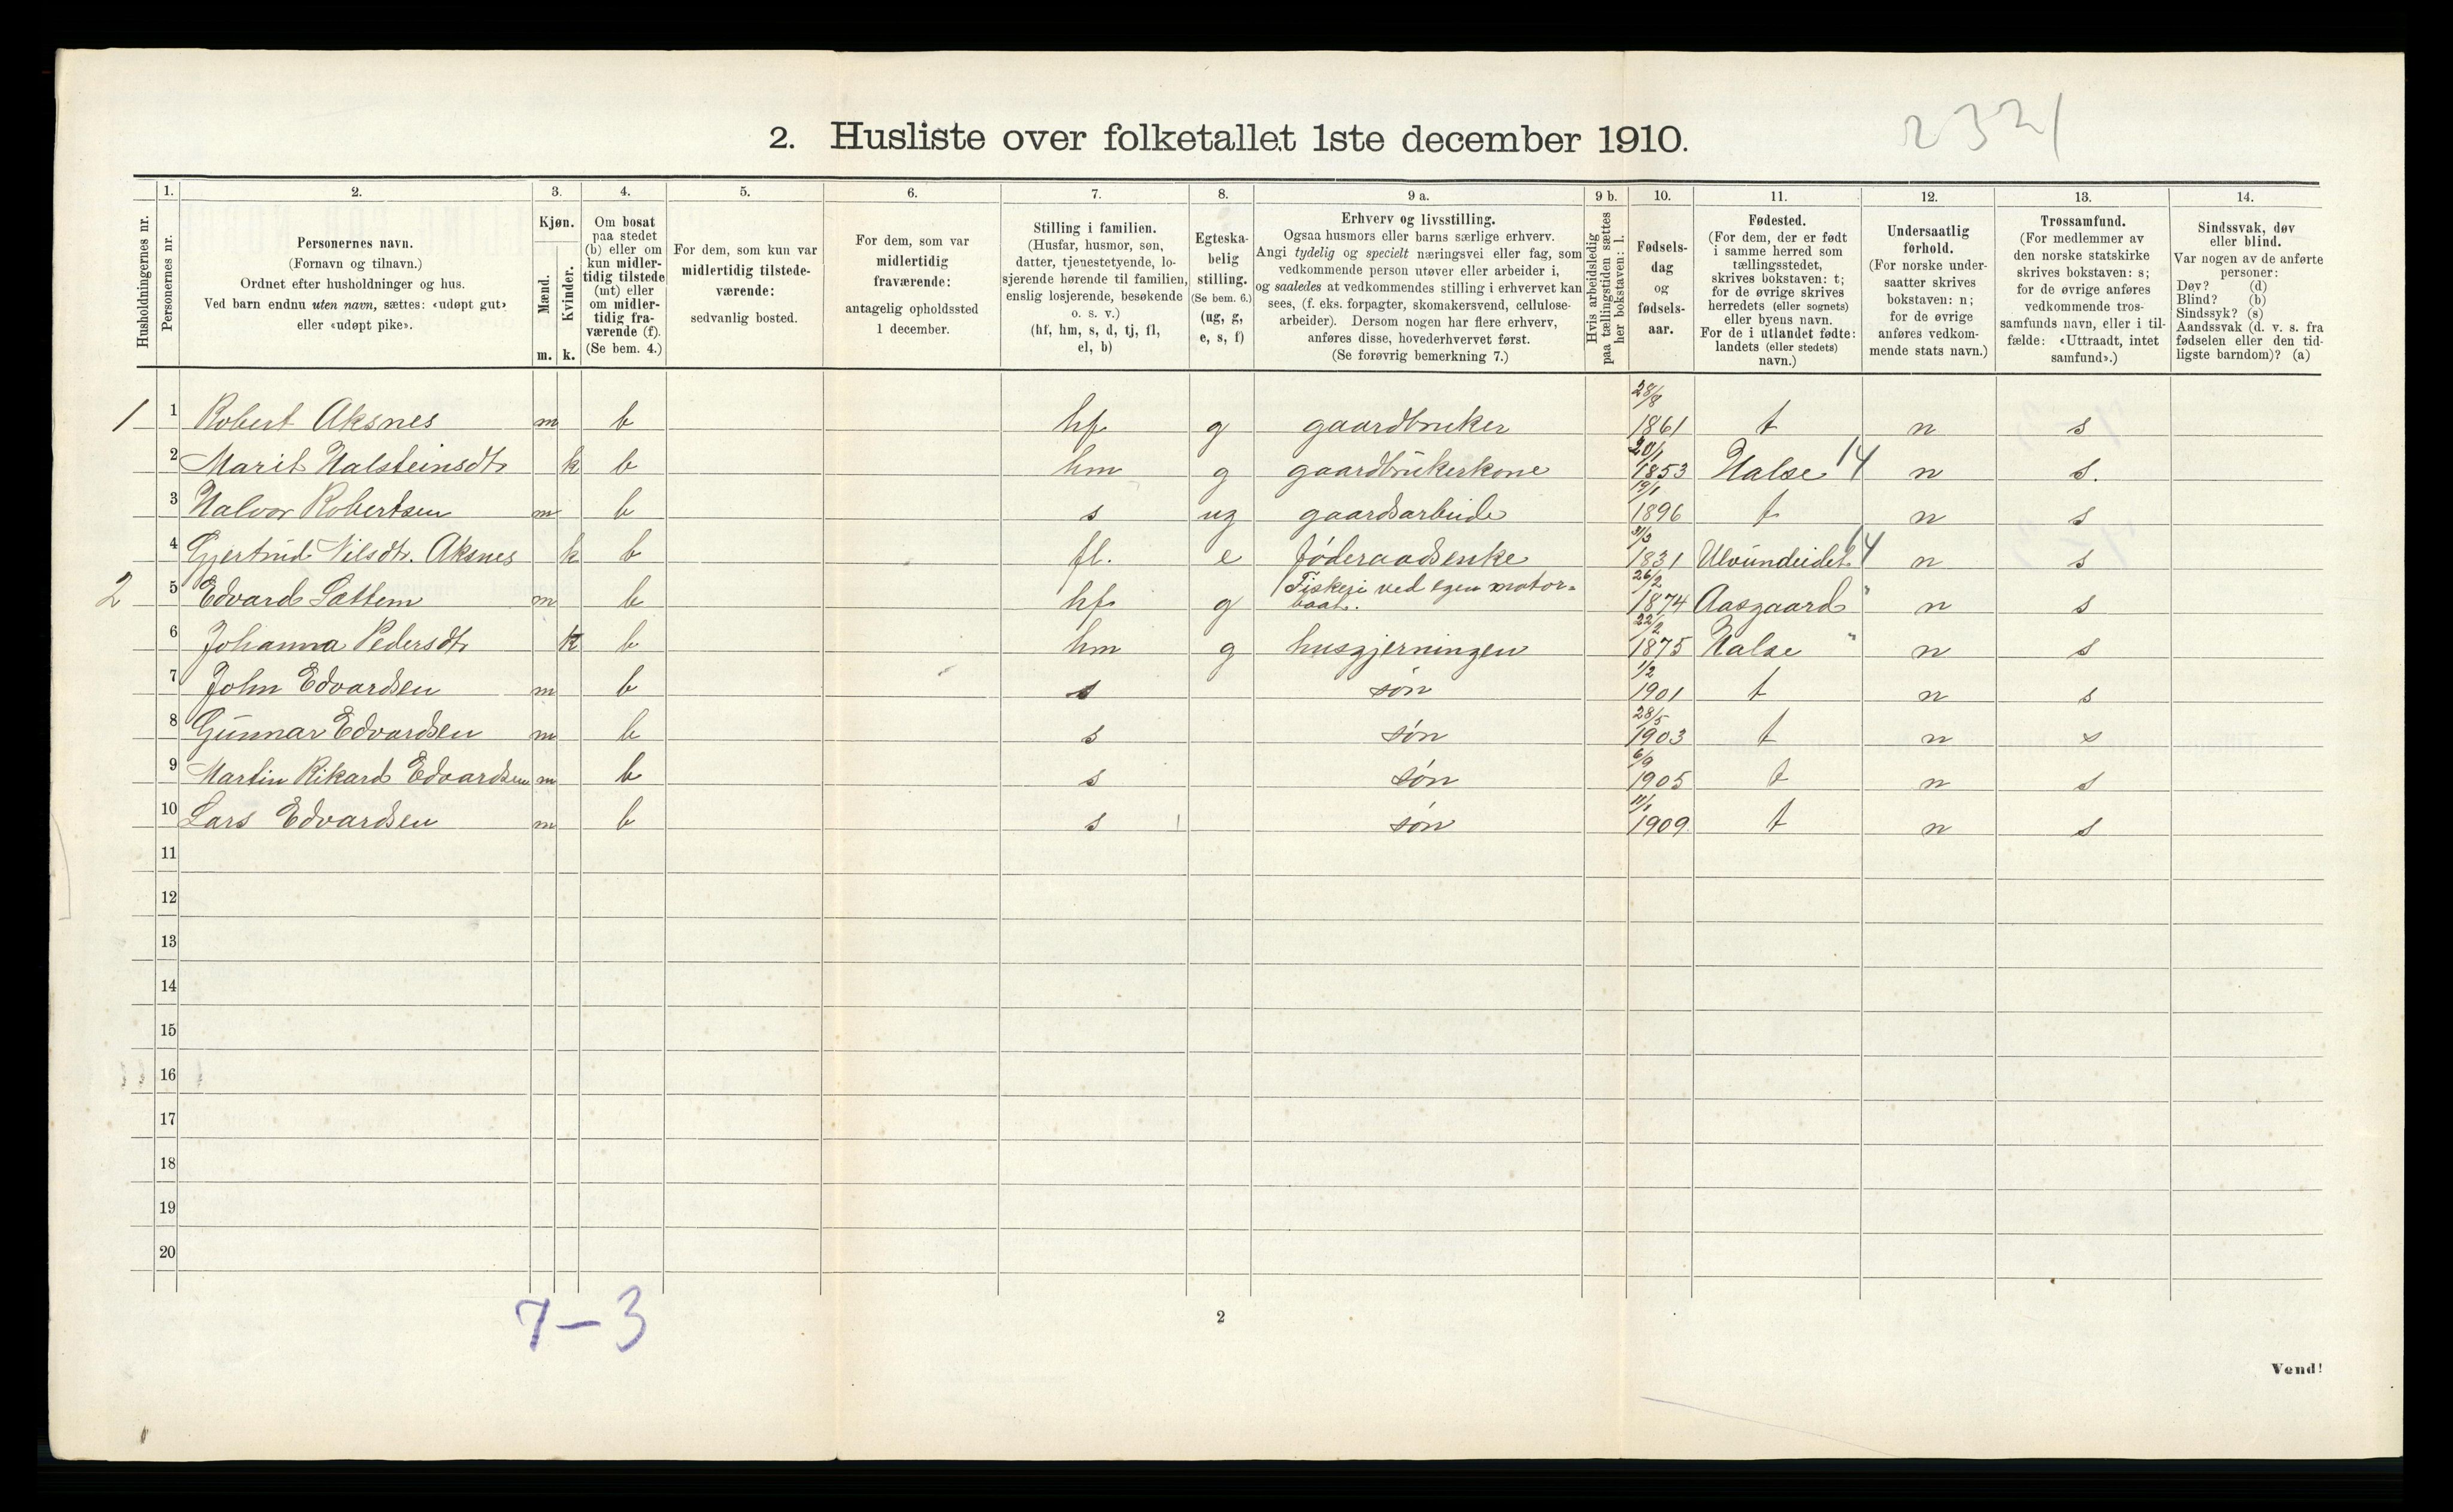 2321
2. Husliste over folketallet 1ste december 1910.
Husholdningernes nr.
1.
Personernes nr.
2.
Personernes navn.
(Fornavn og tilnavn.)
Ordnet efter husholdninger og hus.
Ved barn endnu uten navn, sættes: «udøpt gut»
eller «udøpt pike».
3.
Kjøn.
Mænd.
Kvinder.
m. k.
4.
Om bosat
paa stedet
(b) eller om
kun midler-
tidig tilstede
(mt) eller
om midler-
tidig fra-
værende (f).
(Se bem. 4.)
5.
For dem, som kun var
midlertidig tilstede-
værende:
sedvanlig bosted.
6.
For dem, som var
midlertidig
fraværende:
antagelig opholdssted
1 december.
7.
Stilling i familien.
(Husfar, husmor, søn,
datter, tjenestetyende, lo-
sjerende hørende til familien,
enslig losjerende, besøkende
o. s. v.)
(hf, hm, s, d, tj, fl,
el, b)
8.
Egteska-
belig
stilling.
(Se bem. 6.)
(ug, g,
e, s, f)
9 a.
Erhverv og livsstilling.
Ogsaa husmors eller barns særlige erhverv.
Angi tydelig og specielt næringsvei eller fag, som
vedkommende person utøver eller arbeider i,
og saaledes at vedkommendes stilling i erhvervet kan
sees, (f. eks. forpagter, skomakersvend, cellulose-
arbeider). Dersom nogen har flere erhverv,
anføres disse, hovederhvervet først.
(Se forøvrig bemerkning 7.)
9 b.
Hvis arbeidsledig
paa tællingstiden sættes
her bokstaven: l.
10.
Fødsels-
dag
og
fødsels-
aar.
11.
Fødested.
(For dem, der er født
i samme herred som
tællingsstedet,
skrives bokstaven: t;
for de øvrige skrives
herredets (eller sognets)
eller byens navn.
For de i utlandet fødte:
landets (eller stedets)
navn.)
12.
Undersaatlig
forhold.
(For norske under-
saatter skrives
bokstaven: n;
for de øvrige
anføres vedkom-
mende stats navn.)
13.
Trossamfund.
(For medlemmer av
den norske statskirke
skrives bokstaven: s;
for de øvrige anføres
vedkommende tros-
samfunds navn, eller i til-
fælde: «Uttraadt, intet
samfund».)
14.
Sindssvak, døv
eller blind.
Var nogen av de anførte
personer:
Døv? (d)
Blind? (b)
Sindssyk? (s)
Aandssvak (d. v. s. fra
fødselen eller den tid-
ligste barndom)? (a)
1 1 Robert Aksnes m b hf g gaardbruker 28/8 1861 t n s
2 Marit Halsteinsdtr k b hm g gaardbrukerkone 20/1 1853 Halse 14 n s.
3 Halvor Robertsen m b s ug gaardsarbeide 19/1 1896 t n s
4 Gjertrud Nilsdtr. Aksnes k b fl. e føderaadsenke 31/3 1831 Ulvundeidet 14 n s
2 5 Edvard Sættem m b hf g Fiskeri ved egen motor-
baat. 26/2 1874 Aasgaard " n s
6 Johanna Pedersdtr k b hm g husgjerningen 22/2 1875 Halse " n s
7 John Edvardsen m b s søn 1/2 1901 t n s
8 Gunnar Edvardsen m b s søn 28/5 1903 t n s
9 Martin Rikard Edvardsen m b s søn 6/9 1905 t n s
10 Lars Edvardsen m b s søn 11/1 1909 t n s
11
12
13
14
15
16
17
18
19
20
7-3
2
Vend!